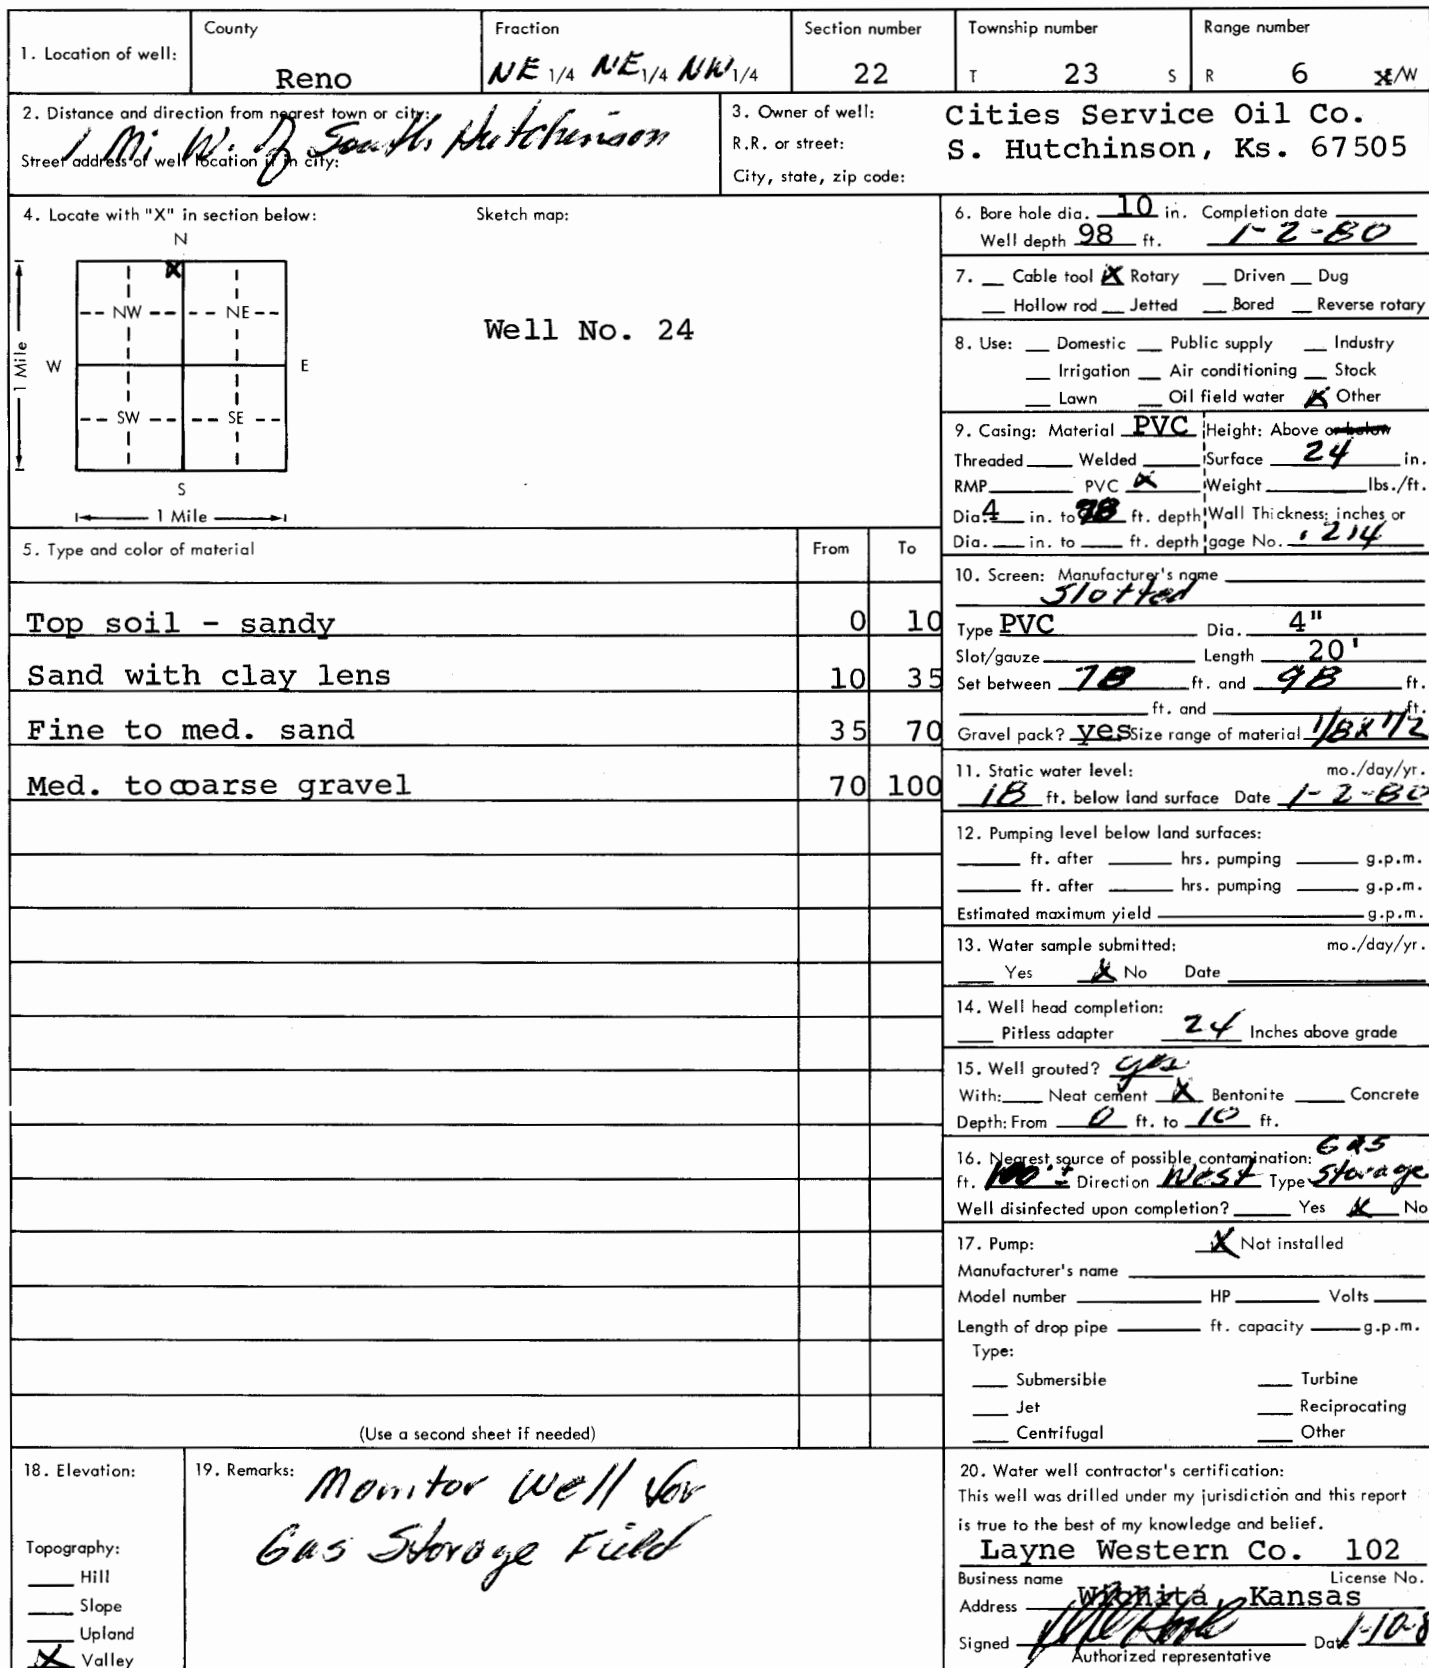 1. Location of well:
County
Reno
Fraction
NE 1/4 NE 1/4 NW 1/4
Section number
22
Township number
T 23 S
Range number
R 6 X/W
2. Distance and direction from nearest town or city:
1 Mi W. of South Hutchinson
Street address of well location if in city:
3. Owner of well:
R.R. or street:
City, state, zip code:
Cities Service Oil Co.
S. Hutchinson, Ks. 67505
4. Locate with "X" in section below:
Sketch map:
N
X
NW NE
W E
SW SE
S
1 Mile
1 Mile
Well No. 24
5. Type and color of material From To
Top soil - sandy 0 10
Sand with clay lens 10 35
Fine to med. sand 35 70
Med. to coarse gravel 70 100
(Use a second sheet if needed)
6. Bore hole dia. 10 in. Completion date
Well depth 98 ft. 1-2-80
7. Cable tool X Rotary Driven Dug
Hollow rod Jetted Bored Reverse rotary
8. Use: Domestic Public supply Industry
Irrigation Air conditioning Stock
Lawn Oil field water X Other
9. Casing: Material PVC Height: Above or below
Threaded Welded Surface 24 in.
RMP PVC X Weight lbs./ft.
Dia. 4 in. to 98 ft. depth Wall Thickness: inches or
Dia. in. to ft. depth gage No. .214
10. Screen: Manufacturer's name
Slotted
Type PVC Dia. 4"
Slot/gauze Length 20'
Set between 78 ft. and 98 ft.
ft. and ft.
Gravel pack? yes Size range of material 1/8 x 1/2
11. Static water level: mo./day/yr.
18 ft. below land surface Date 1-2-80
12. Pumping level below land surfaces:
ft. after hrs. pumping g.p.m.
ft. after hrs. pumping g.p.m.
Estimated maximum yield g.p.m.
13. Water sample submitted: mo./day/yr.
Yes X No Date
14. Well head completion:
Pitless adapter 24 Inches above grade
15. Well grouted? yes
With: Neat cement X Bentonite Concrete
Depth: From 0 ft. to 10 ft.
16. Nearest source of possible contamination: Gas
ft. 100' ± Direction West Type Storage
Well disinfected upon completion? Yes X No
17. Pump: X Not installed
Manufacturer's name
Model number HP Volts
Length of drop pipe ft. capacity g.p.m.
Type:
Submersible Turbine
Jet Reciprocating
Centrifugal Other
18. Elevation:
Topography:
Hill
Slope
Upland
X Valley
19. Remarks: Monitor Well for
Gas Storage Field
20. Water well contractor's certification:
This well was drilled under my jurisdiction and this report
is true to the best of my knowledge and belief.
Layne Western Co. 102
Business name License No.
Address Wichita, Kansas
Signed Date 1-10-8
Authorized representative